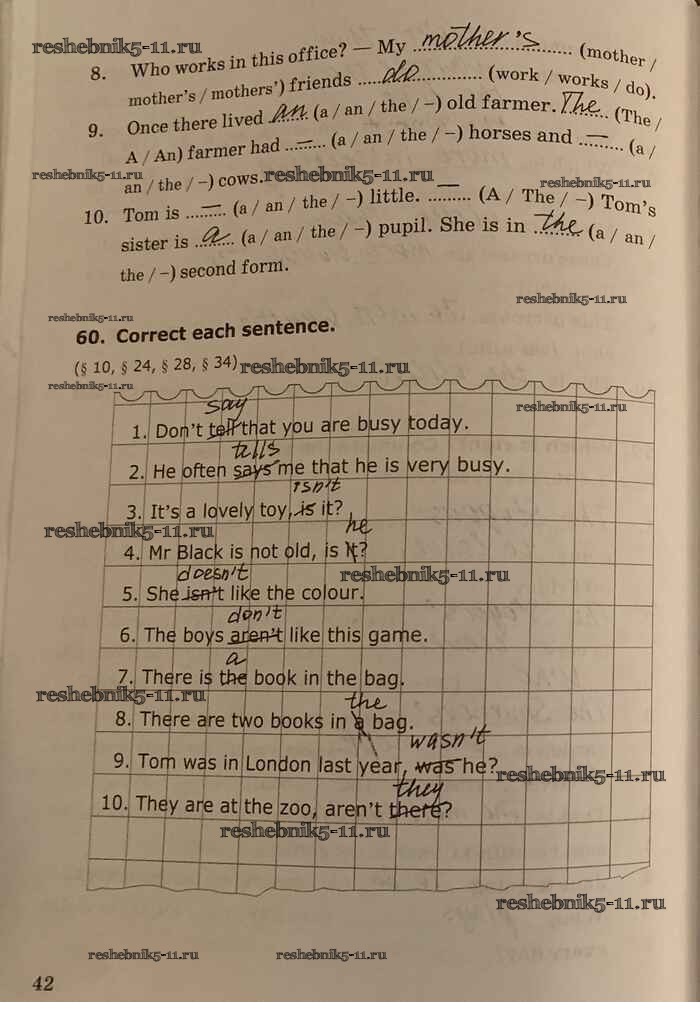 reshebnik5-11.ru
8. Who works in this office? — My mother's (mother /
mother's / mothers') friends do (work / works / do).
9. Once there lived an (a / an / the / –) old farmer. The (The /
A / An) farmer had — (a / an / the / –) horses and — (a /
reshebnik5-11.ru
an / the / –) cows. reshebnik5-11.ru
reshebnik5-11.ru
10. Tom is — (a / an / the / –) little. — (A / The / –) Tom's
sister is a (a / an / the / –) pupil. She is in the (a / an /
the / –) second form.
reshebnik5-11.ru
reshebnik5-11.ru
60. Correct each sentence.
(§ 10, § 24, § 28, § 34) reshebnik5-11.ru
reshebnik5-11.ru
reshebnik5-11.ru
say
1. Don't tell that you are busy today.
tells
2. He often says me that he is very busy.
isn't
3. It's a lovely toy, is it?
reshebnik5-11.ru
he
4. Mr Black is not old, is it?
doesn't
reshebnik5-11.ru
5. She isn't like the colour.
don't
6. The boys aren't like this game.
a
7. There is the book in the bag.
reshebnik5-11.ru
the
8. There are two books in a bag.
wasn't
9. Tom was in London last year, was he?
reshebnik5-11.ru
they
10. They are at the zoo, aren't there?
reshebnik5-11.ru
reshebnik5-11.ru
reshebnik5-11.ru
reshebnik5-11.ru
42